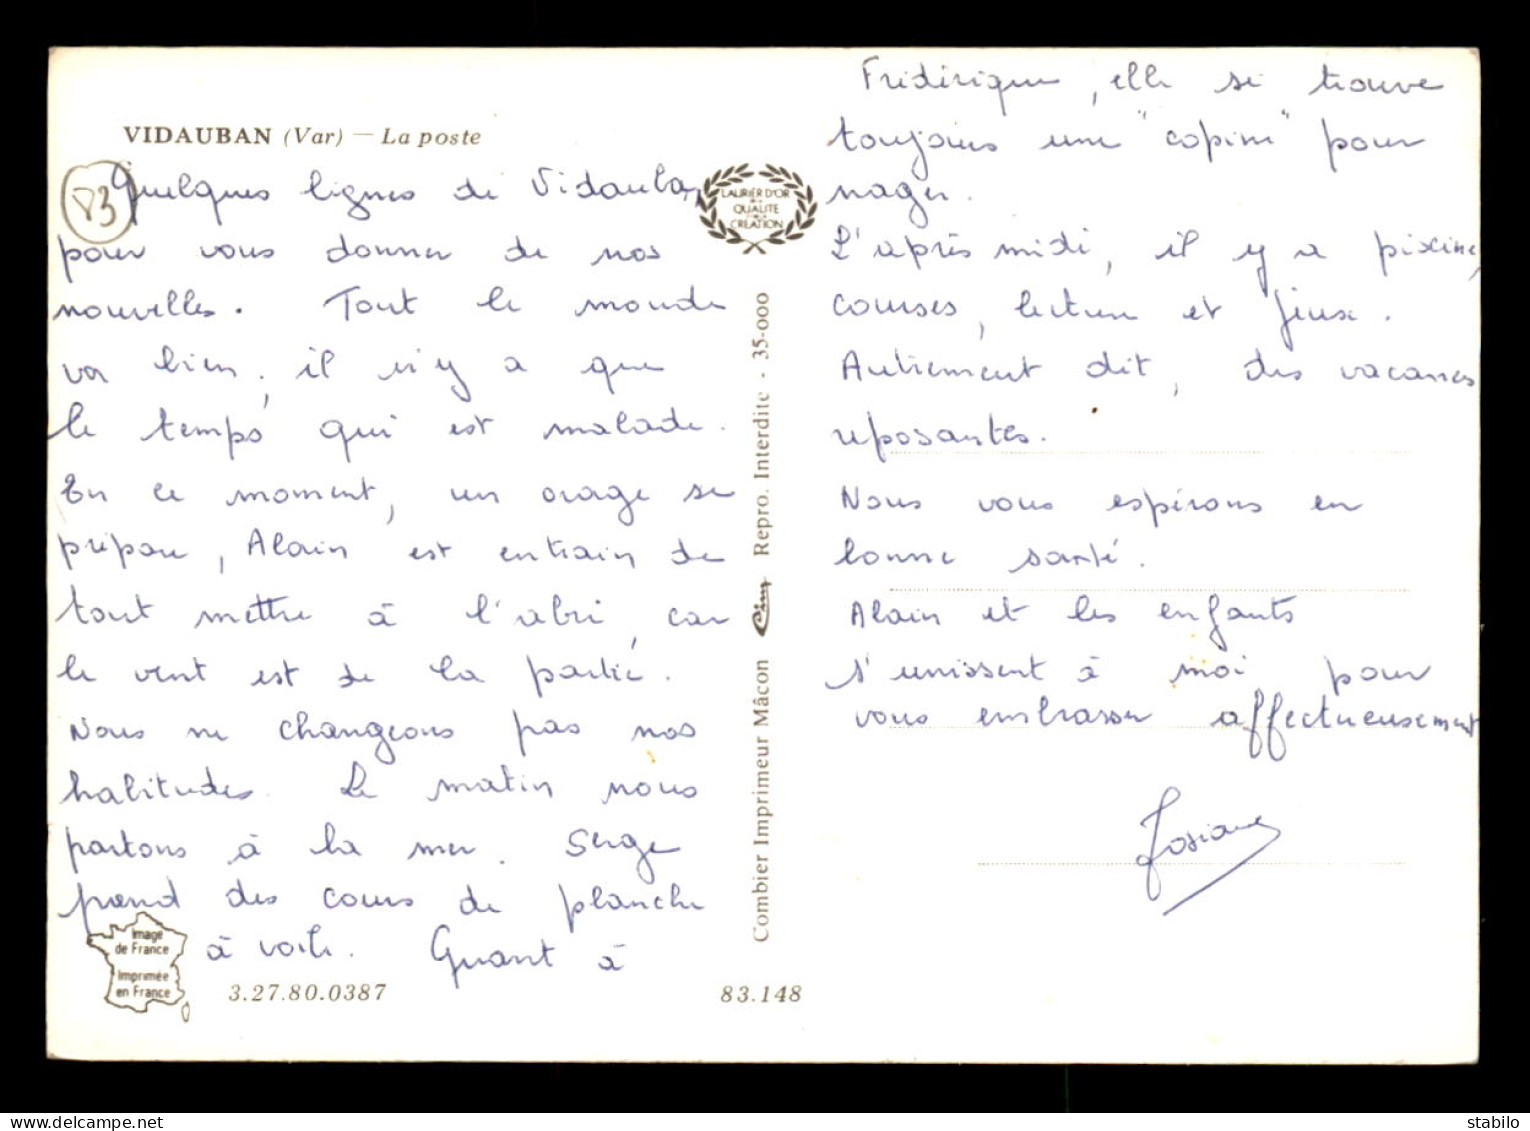 VIDAUBAN (Var) — La poste
83
Quelques lignes de Vidauban
pour vous donner de nos
nouvelles. Tout le monde
va bien, il n'y a que
le temps qui est malade.
En ce moment, un orage se
prépare, Alain est entrain de
tout mettre à l'abri, car
le vent est de la partie.
Nous ne changeons pas nos
habitudes. Le matin nous
partons à la mer. Serge
prend des cours de planche
à voile. Quant à
Image
de France
Imprimée
en France
3.27.80.0387
83.148
LAURIER D'OR
DE LA
QUALITE
CREATION
Combier Imprimeur Mâcon Cim Repro. Interdite - 35-000
Frédérique, elle se trouve
toujours une "copine" pour
nager.
L'après midi, il y a piscine,
courses, lecture et jeux.
Autrement dit, des vacances
reposantes.
Nous vous espérons en
bonne santé.
Alain et les enfants
s'unissent à moi pour
vous embrasser affectueusement
Josiane
www.delcampe.net
stabilo